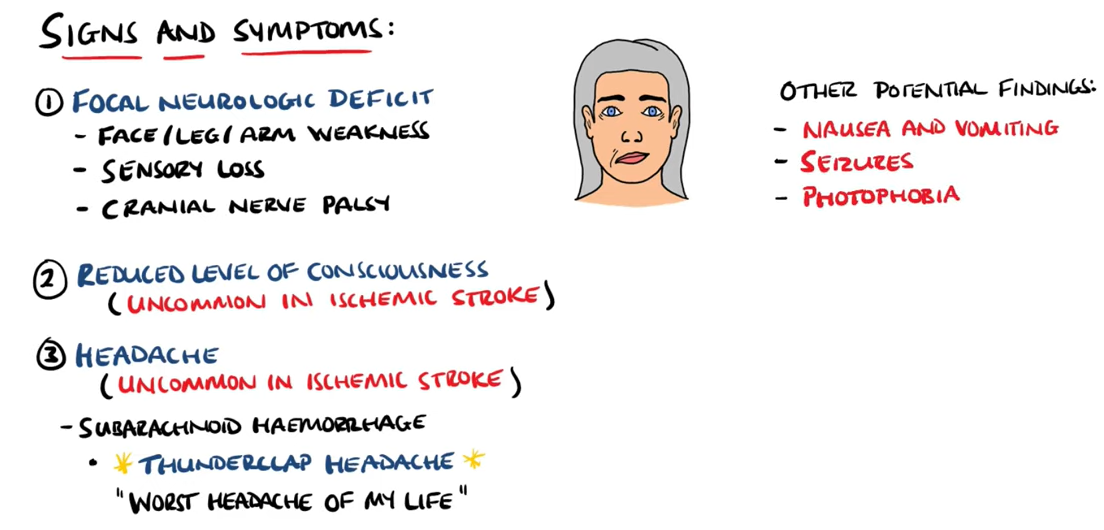 SIGNS AND SYMPTOMS:
① FOCAL NEUROLOGIC DEFICIT
- FACE/LEG/ARM WEAKNESS
- SENSORY LOSS
- CRANIAL NERVE PALSY
② REDUCED LEVEL OF CONSCIOUSNESS
(UNCOMMON IN ISCHEMIC STROKE)
③ HEADACHE
(UNCOMMON IN ISCHEMIC STROKE)
- SUBARACHNOID HAEMORRHAGE
• * THUNDERCLAP HEADACHE *
"WORST HEADACHE OF MY LIFE"
OTHER POTENTIAL FINDINGS:
- NAUSEA AND VOMITING
- SEIZURES
- PHOTOPHOBIA